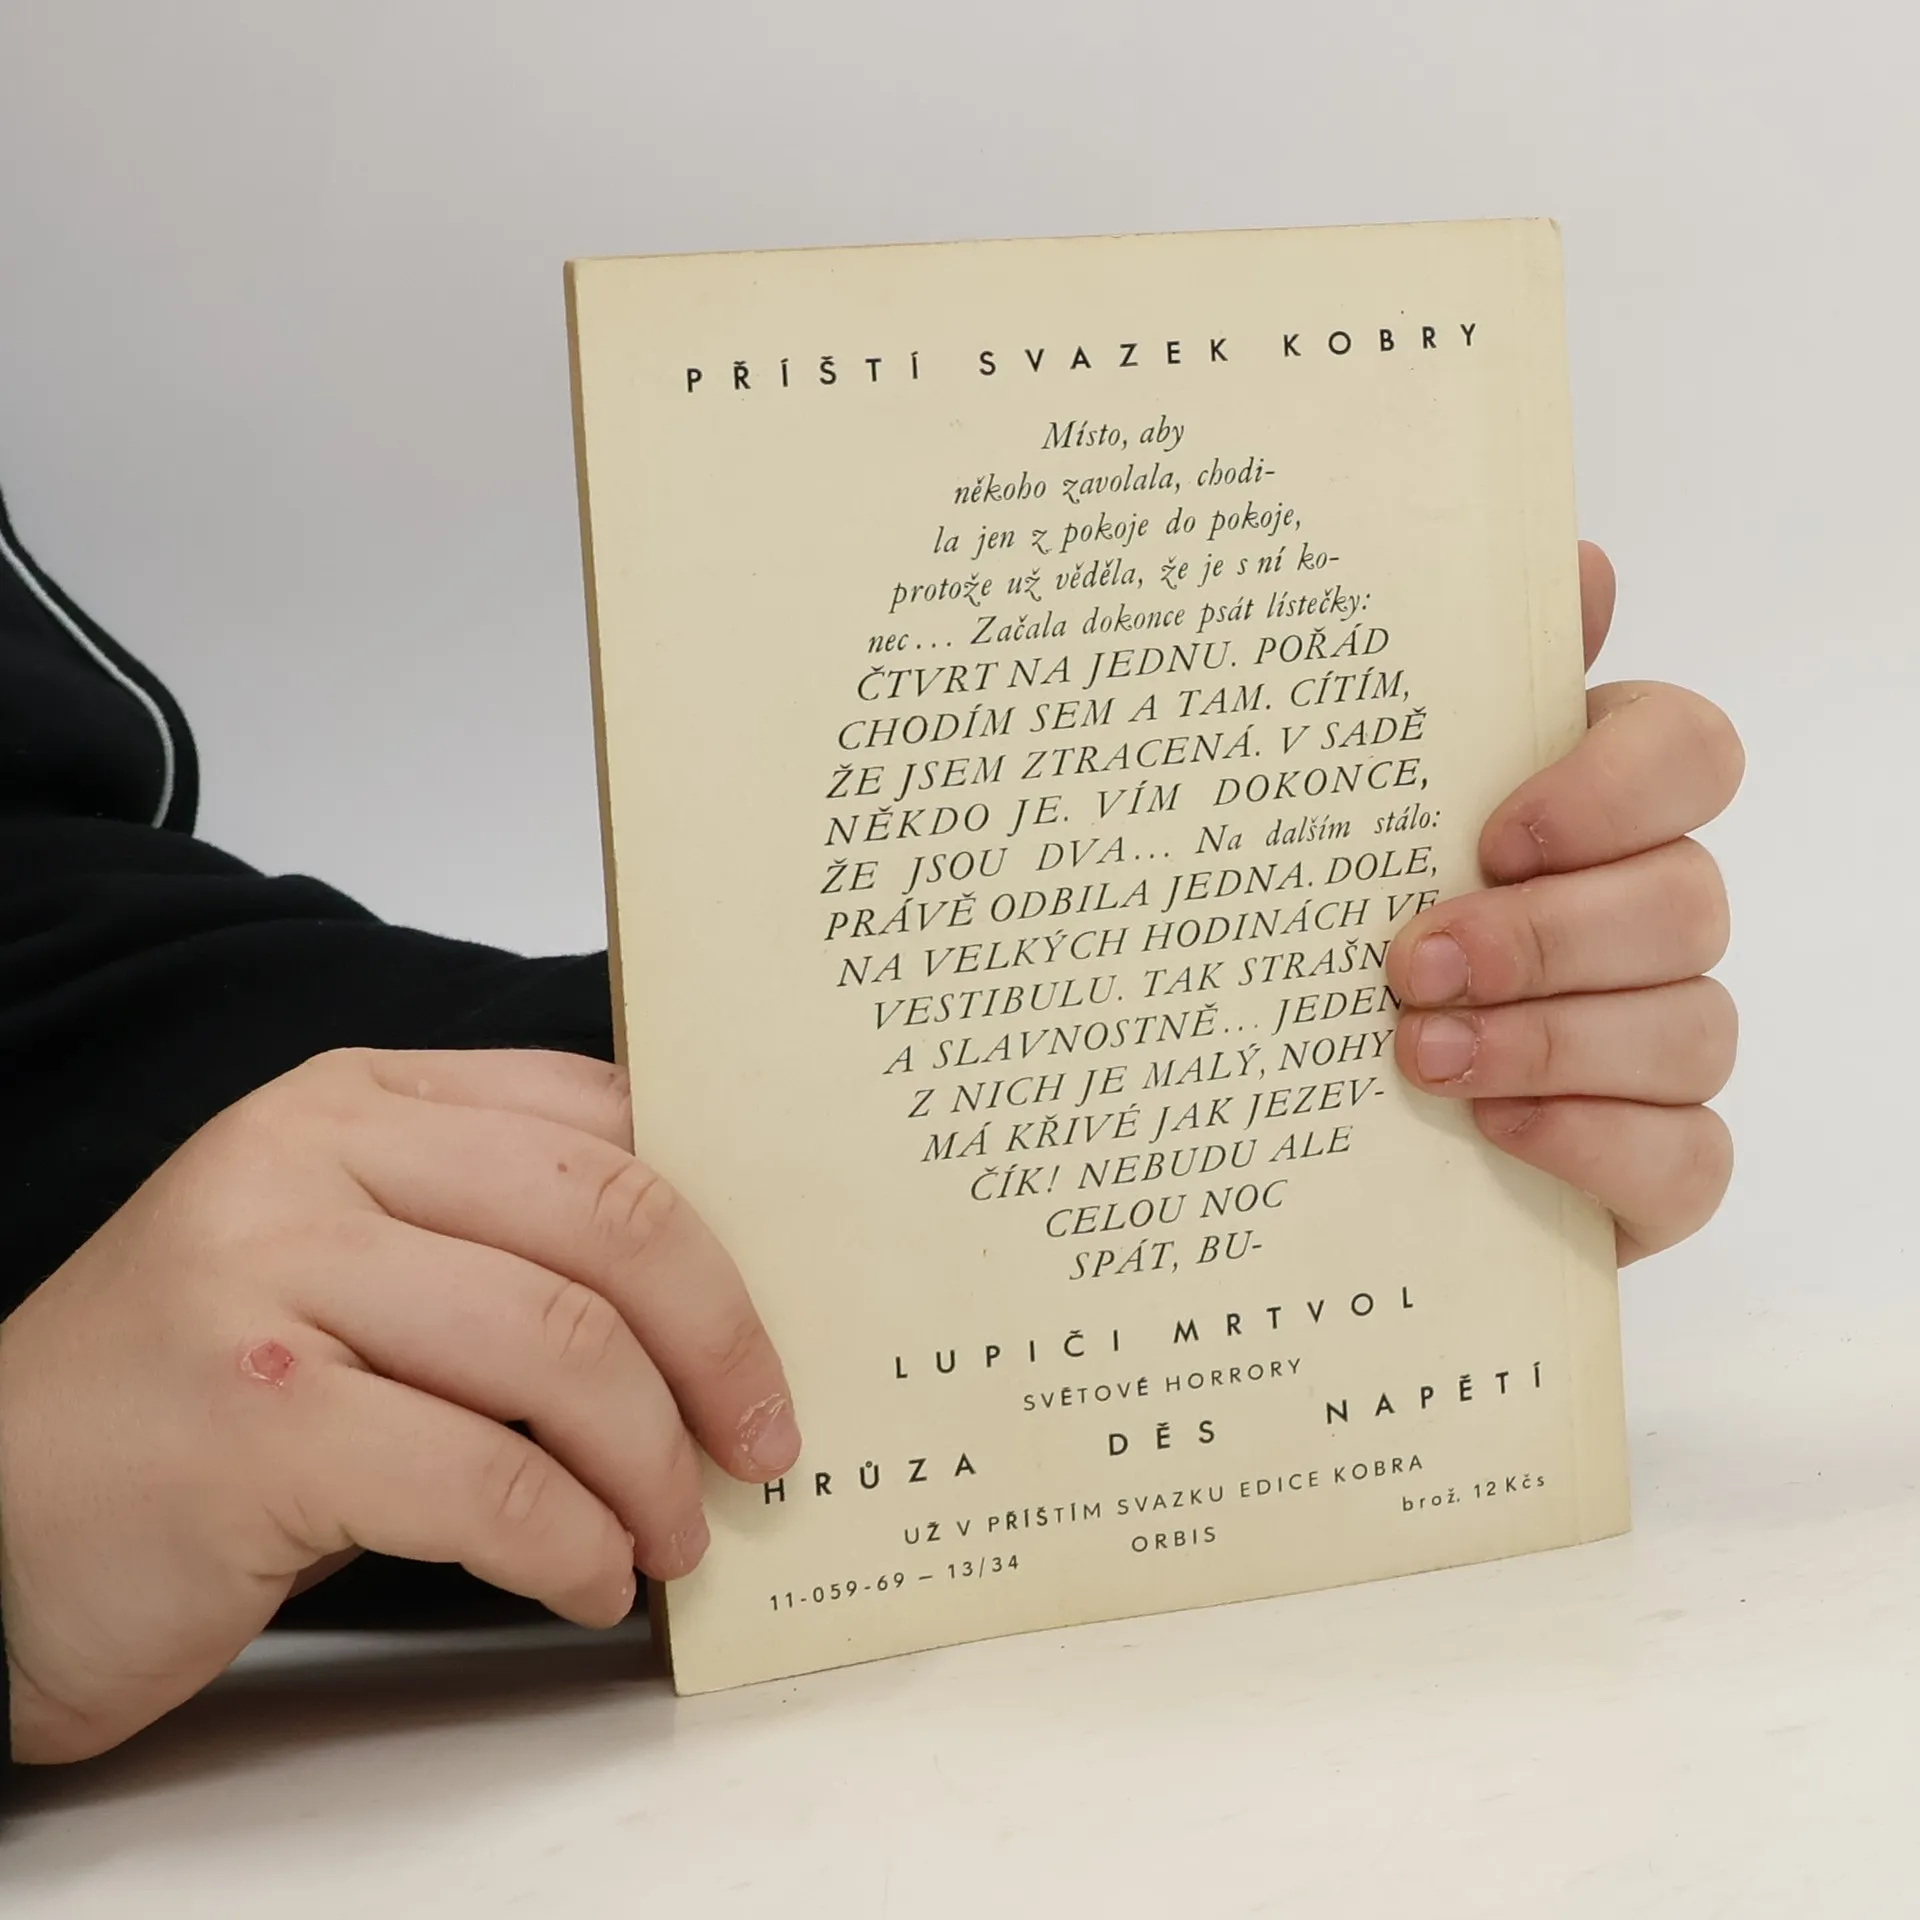 PŘÍŠTÍ SVAZEK KOBRY
Místo, aby
někoho zavolala, chodi-
la jen z pokoje do pokoje,
protože už věděla, že je s ní ko-
nec... Začala dokonce psát lístečky:
ČTVRT NA JEDNU. POŘÁD
CHODÍM SEM A TAM. CÍTÍM,
ŽE JSEM ZTRACENÁ. V SADĚ
NĚKDO JE. VÍM DOKONCE,
ŽE JSOU DVA... Na dalším stálo:
PRÁVĚ ODBILA JEDNA. DOLE,
NA VELKÝCH HODINÁCH VE
VESTIBULU. TAK STRAŠN
A SLAVNOSTNĚ... JEDEN
Z NICH JE MALÝ, NOHY
MÁ KŘIVÉ JAK JEZEV-
ČÍK! NEBUDU ALE
CELOU NOC
SPÁT, BU-
LUPIČI MRTVOL
SVĚTOVÉ HORRORY
HRŮZA DĚS NAPĚTÍ
UŽ V PŘÍŠTÍM SVAZKU EDICE KOBRA
11-059-69 — 13/34 ORBIS brož. 12 Kčs